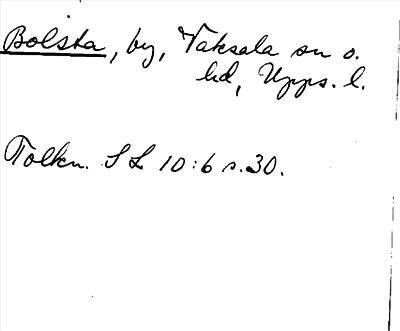 Bolsta, by, Vaksala sn o.
hd, Upps. l.
Tolkn. SL 10:6 s. 30.